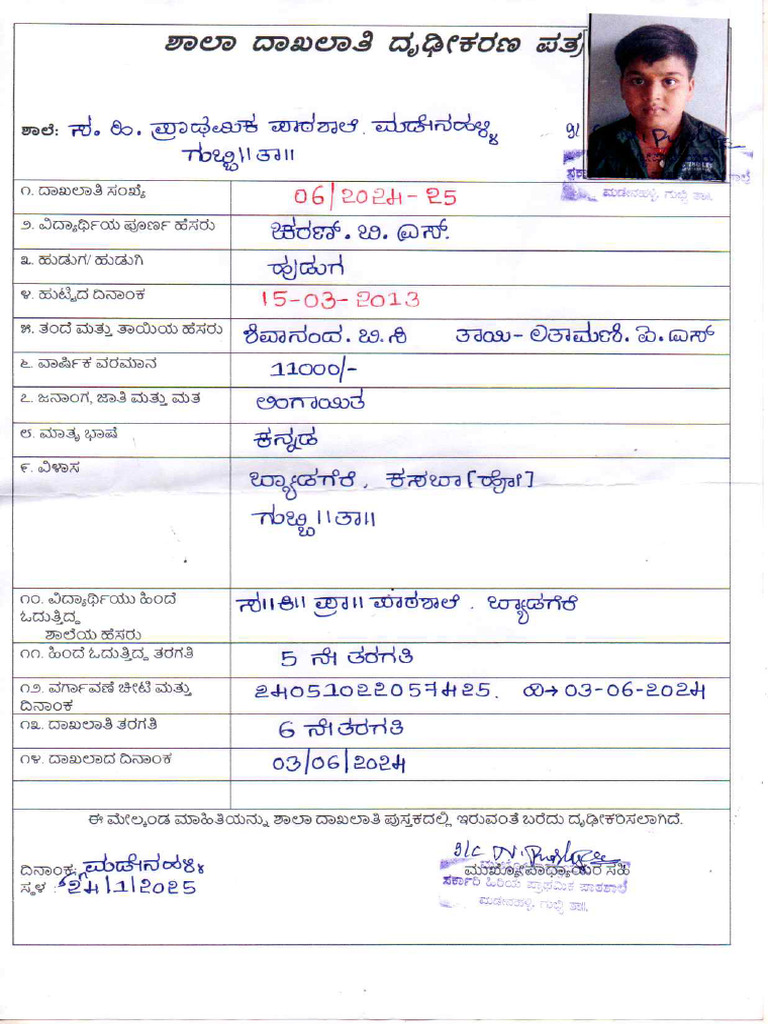 ಶಾಲಾ ದಾಖಲಾತಿ ದೃಢೀಕರಣ ಪತ್ರ
ಶಾಲೆ: ಸ. ಹಿ. ಪ್ರಾಥಮಿಕ ಪಾಠಶಾಲೆ. ಮಡೇನಹಳ್ಳಿ
ಗುಬ್ಬಿ।। ತಾ।।
ಮಡೇನಹಳ್ಳಿ, ಗುಬ್ಬಿ ತಾ.
೧. ದಾಖಲಾತಿ ಸಂಖ್ಯೆ 06/2024-25
೨. ವಿದ್ಯಾರ್ಥಿಯ ಪೂರ್ಣ ಹೆಸರು ಚರಣ್. ಬಿ. ಎಸ್.
೩. ಹುಡುಗ/ ಹುಡುಗಿ ಹುಡುಗ
೪. ಹುಟ್ಟಿದ ದಿನಾಂಕ 15-03-2013
೫. ತಂದೆ ಮತ್ತು ತಾಯಿಯ ಹೆಸರು ಶಿವಾನಂದ. ಬಿ.ಸಿ ತಾಯಿ- ಲತಾಮಣಿ. ಪಿ. ಎಸ್
೬. ವಾರ್ಷಿಕ ವರಮಾನ 11000/-
೭. ಜನಾಂಗ, ಜಾತಿ ಮತ್ತು ಮತ ಲಿಂಗಾಯಿತ
೮. ಮಾತೃ ಭಾಷೆ ಕನ್ನಡ
೯. ವಿಳಾಸ ಬ್ಯಾಡಗೆರೆ, ಕಸಬಾ [ಹೋ]
ಗುಬ್ಬಿ ।। ತಾ।।
೧೦. ವಿದ್ಯಾರ್ಥಿಯು ಹಿಂದೆ ಸ।। ಕಿ।। ಪ್ರಾ।। ಪಾಠಶಾಲೆ. ಬ್ಯಾಡಗೆರೆ
ಓದುತ್ತಿದ್ದ
ಶಾಲೆಯ ಹೆಸರು
೧೧. ಹಿಂದೆ ಓದುತ್ತಿದ್ದ ತರಗತಿ 5 ನೇ ತರಗತಿ
೧೨. ವರ್ಗಾವಣೆ ಚೀಟಿ ಮತ್ತು 24051022057425. ದಿ→ 03-06-2024
ದಿನಾಂಕ
೧೩. ದಾಖಲಾತಿ ತರಗತಿ 6 ನೇ ತರಗತಿ
೧೪. ದಾಖಲಾದ ದಿನಾಂಕ 03/06/2024
ಈ ಮೇಲ್ಕಂಡ ಮಾಹಿತಿಯನ್ನು ಶಾಲಾ ದಾಖಲಾತಿ ಪುಸ್ತಕದಲ್ಲಿ ಇರುವಂತೆ ಬರೆದು ದೃಢೀಕರಿಸಲಾಗಿದೆ.
ದಿನಾಂಕ: ಮಡೇನಹಳ್ಳಿ ಮುಖ್ಯೋಪಾಧ್ಯಾಯರ ಸಹಿ
ಸ್ಥಳ : 24/1/2025 ಸರ್ಕಾರಿ ಹಿರಿಯ ಪ್ರಾಥಮಿಕ ಪಾಠಶಾಲೆ
ಮಡೇನಹಳ್ಳಿ, ಗುಬ್ಬಿ ತಾ॥.